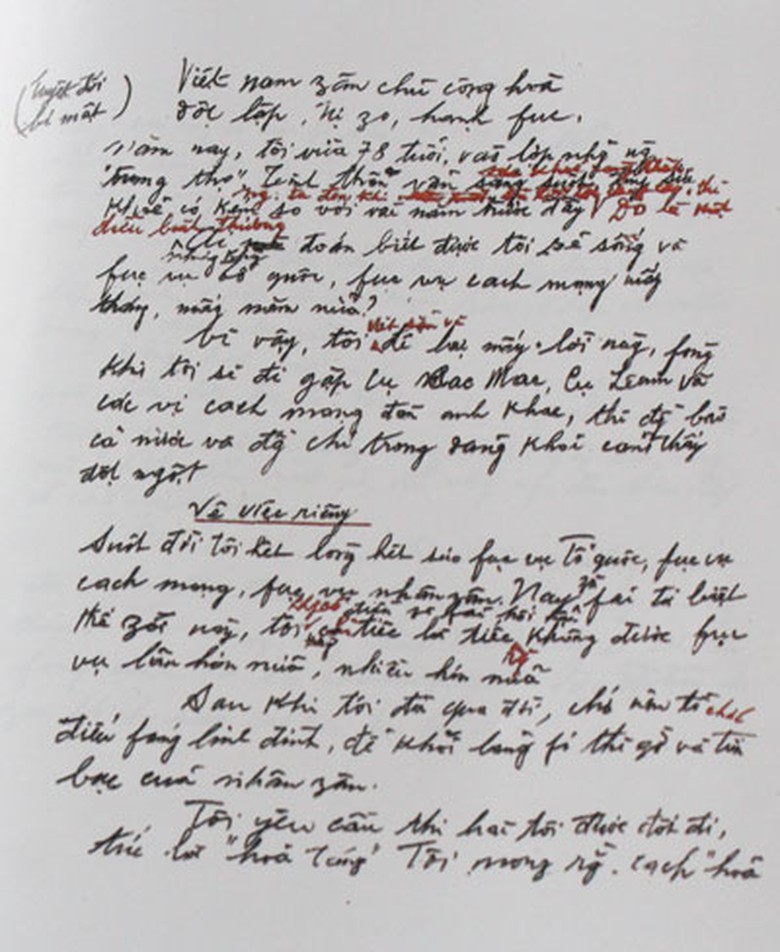 (tuyệt đối
bí mật)
Việt nam zân chủ cộng hoà
độc lập, tự zo, hạnh fúc.
Năm nay, tôi vừa 78 tuổi, vào lớp nhữg ng
"trung thọ". Tinh thần vẫn sáng suốt
khoẻ có kém so với vài năm trước đây. Đó là một
điều bình thường
đoán biết được tôi sẽ sống và
fục vụ tổ quốc, fục vụ cách mạng mấy
tháng, mấy năm nữa?
Vì vậy, tôi viết sẵn để lại mấy lời này, fòng
khi tôi sẽ đi gặp cụ Các Mác, cụ Lênin và
các vị cách mạng đàn anh khác, thì đg bào
cả nước và đg chí trong đảng khỏi cảm thấy
đột ngột
Về việc riêng
Suốt đời tôi hết lòng hết sức fục vụ Tổ quốc, fục vụ
cách mạng, fục vụ nhân zân. Nay zù fải từ biệt
thế zới này, tôi không có điều gì fải hối hận
chỉ tiếc là tiếc không được fục
vụ lâu hơn nữa, nhiều hơn nữa
Sau khi tôi đã qua đời, chớ nên tổ chức
điếu fúng linh đình, để khỏi lãng fí thì zờ và tiền
bạc của nhân zân.
Tôi yêu cầu thi hài tôi được đốt đi,
tức là "hoả táng". Tôi mong rg. cách "hoả